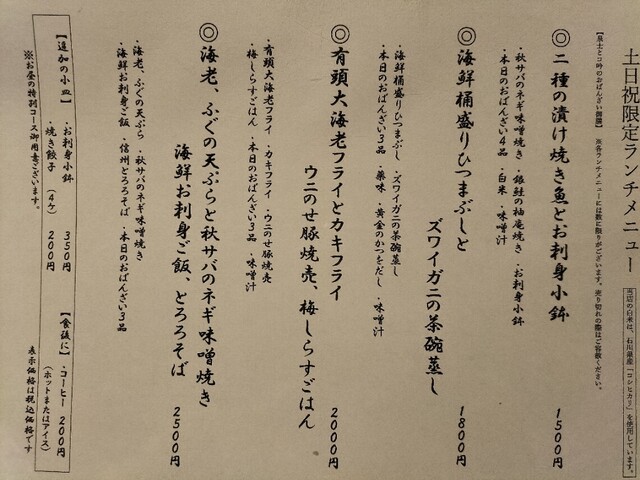 土日祝限定ランチメニュー
当店の白米は、石川県産「コシヒカリ」を使用しています。
※各ランチメニューには数に限りがございます。売り切れの際はご容赦ください。
◎二種の漬け焼き魚とお刺身小鉢 1500円
・秋サバのネギ味噌焼き・銀鮭の柚庵焼き・お刺身小鉢
・本日のおばんざい4品・白米・味噌汁
◎海鮮桶盛りひつまぶしと
ズワイガニの茶碗蒸し 1800円
・海鮮桶盛りひつまぶし・ズワイガニの茶碗蒸し
・本日のおばんざい3品・薬味・黄金のかつをだし・味噌汁
◎有頭大海老フライとカキフライ
ウニのせ豚焼売、梅しらすごはん 2000円
・有頭大海老フライ・カキフライ・ウニのせ豚焼売
・梅しらすごはん・本日のおばんざい3品・味噌汁
◎海老、ふぐの天ぷらと秋サバのネギ味噌焼き
海鮮お刺身ご飯、とろろそば 2500円
・海老、ふぐの天ぷら・秋サバのネギ味噌焼き
・海鮮お刺身ご飯・信州とろろそば・本日のおばんざい3品
【追加の小皿】・お刺身小鉢 350円
・焼き餃子(4ケ) 200円
【食後に】・コーヒー 200円
(ホットまたはアイス)
※お昼の特別コース御用意ございます。
表示価格は税込価格です